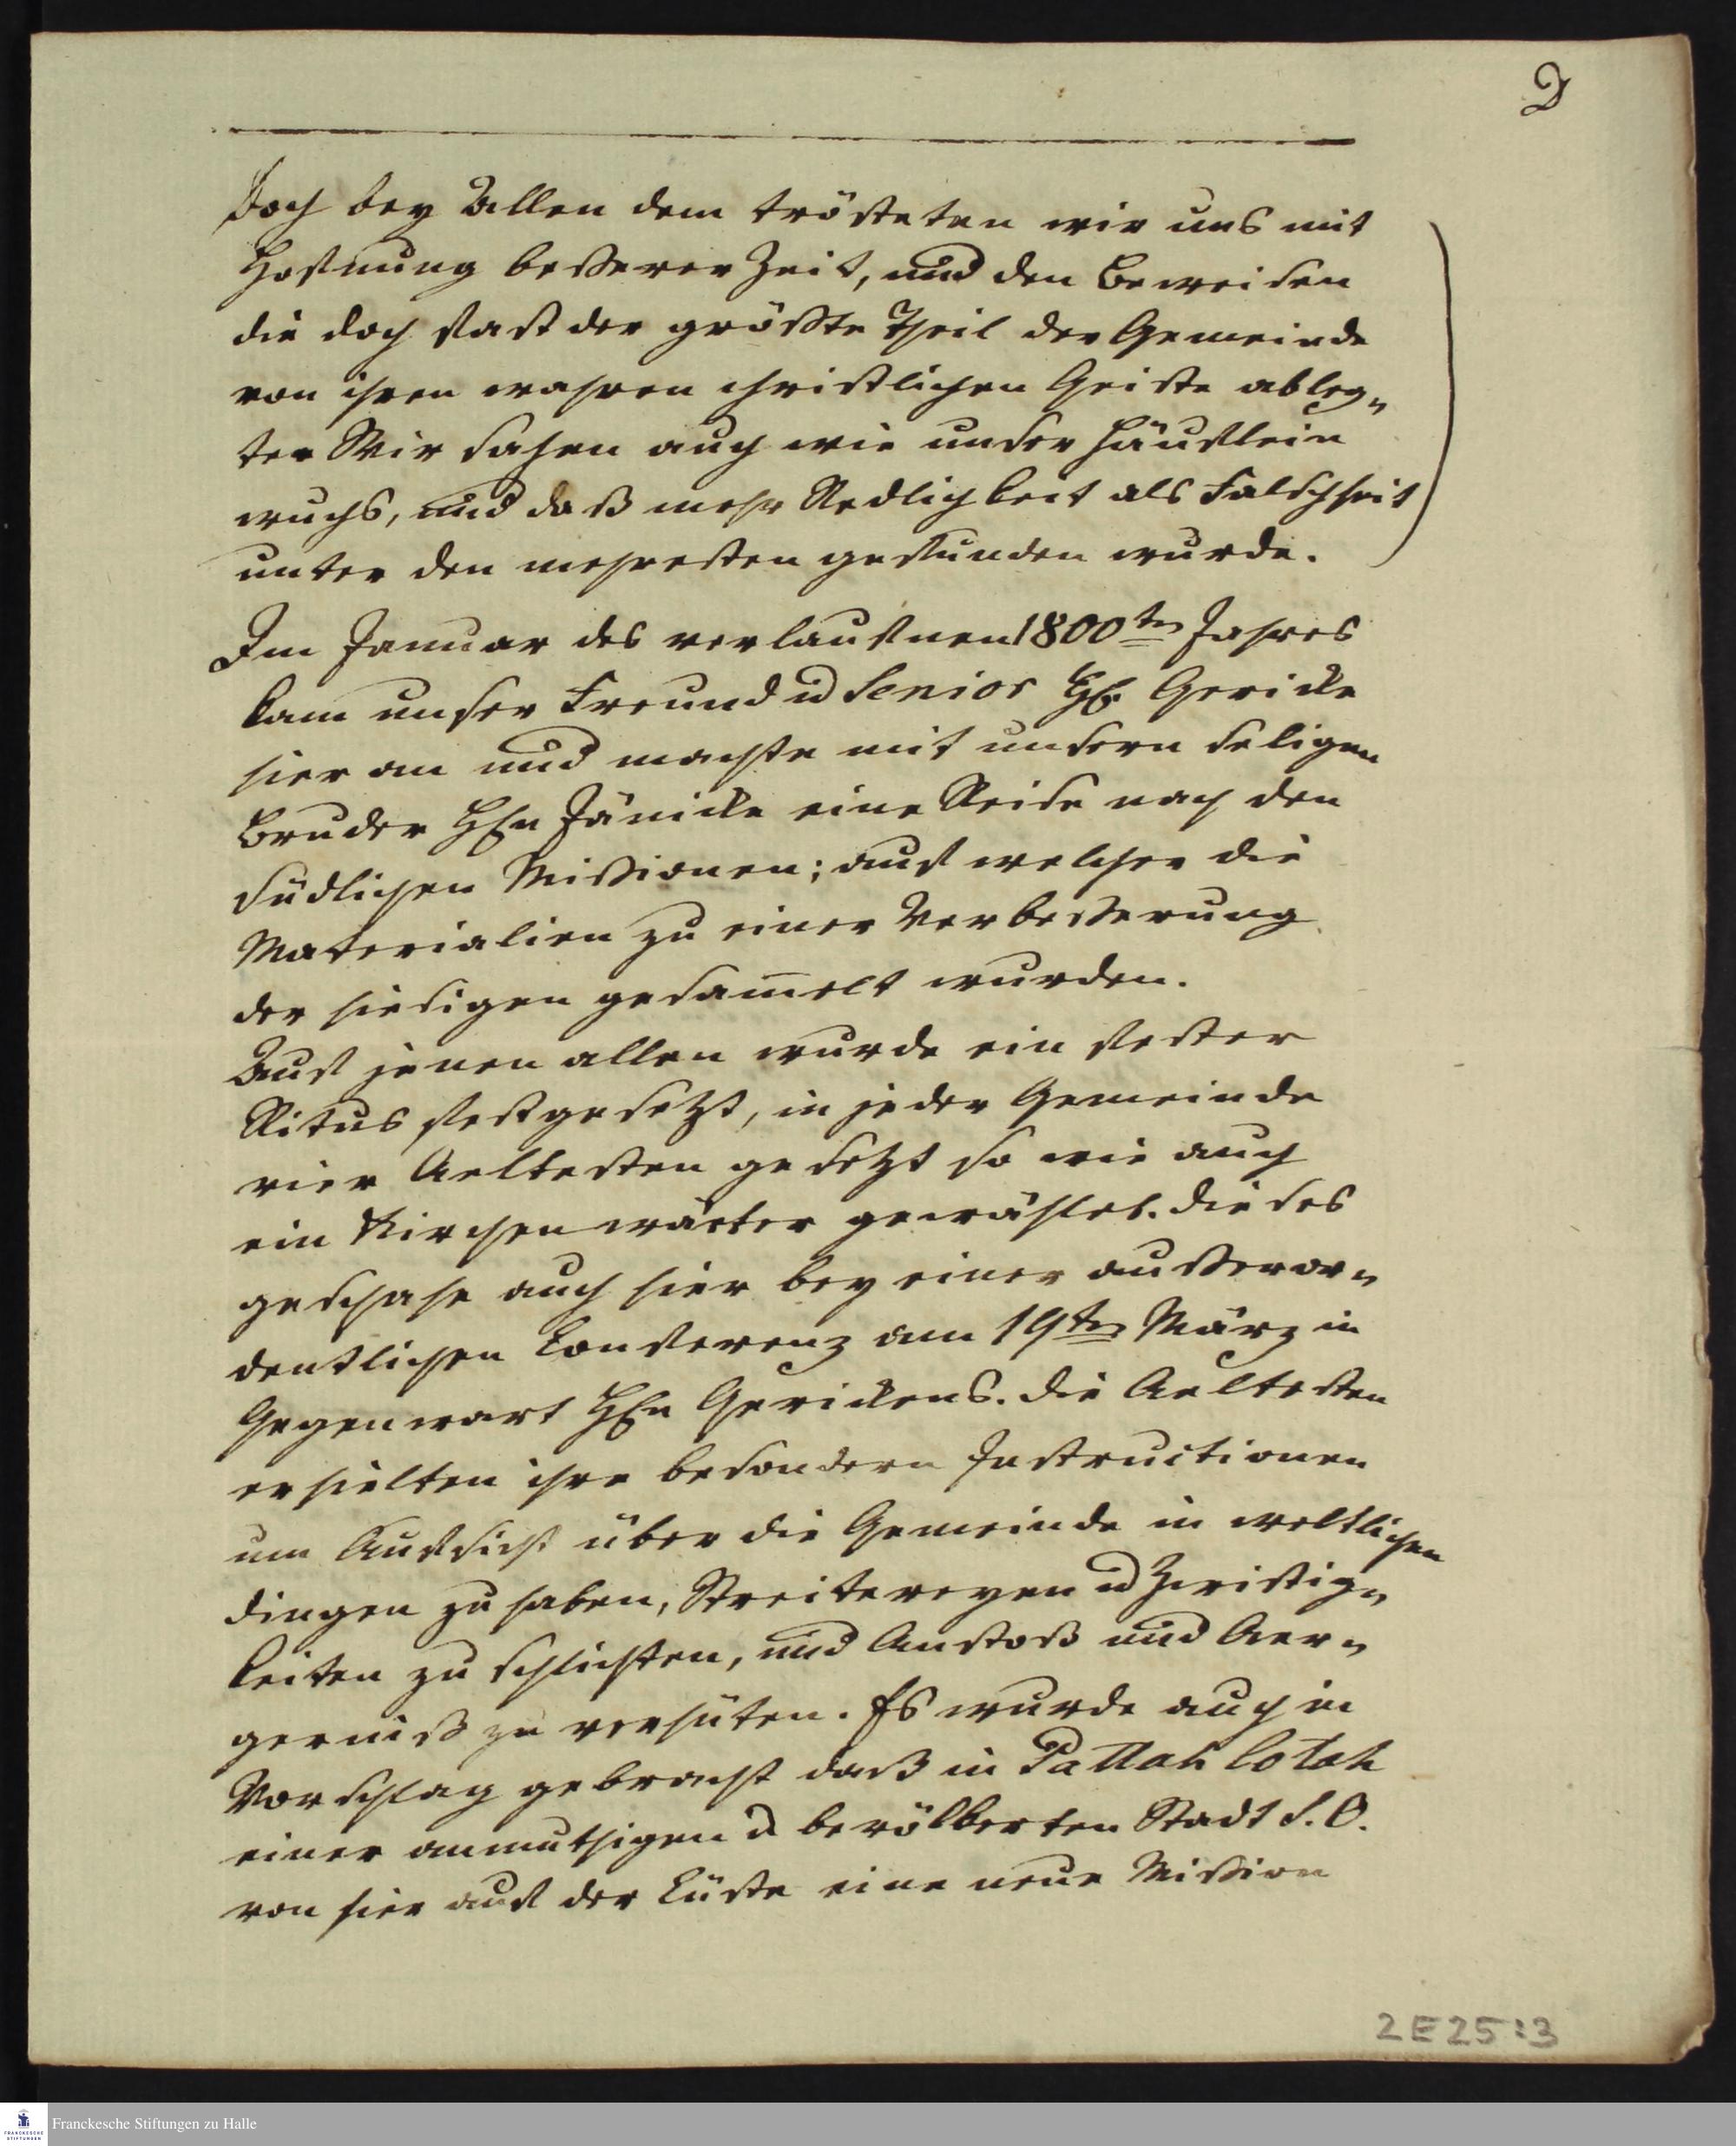 2
Doch bey Allen dem trösteten wir uns mit
Hofnung besserer Zeit, und den Beweisen
die doch fast der größte Theil der Gemeinde
von ihren wahren christlichen Geiste ableg„
ten Wir sahen auch wie unser Häuflein
wuchs, und daß mehr Redlichkeit als Falschheit
unter den mehresten gefunden wurde.
Im Januar des verlaufnen 1800ten Jahres
kam unser Freund u Senior H. Gericke
hier an und machte mit unsern seligen
Bruder Hrn Jänicke eine Reise nach den
südlichen Missionen; auf welcher die
Materialien zu einer Verbesserung
der hiesigen gesam̄elt wurden.
Auf jenen allen wurde ein fester
Ritus festgesetzt, in jeder Gemeinde
vier Aeltesten gesetzt so wie auch
ein Kirchenwärter gewählet. dieses
geschahe auch hier bey einer ausseror„
dentlichen Conferenz am 19ten März in
Gegenwart Hrn Gerickens. die Aeltesten
erhielten ihre besondern Instructionen
um Aufsicht über die Gemeinde in weltlichen
dingen zu haben, Streitereyen u Zwistig„
keiten zu schlichten, und Anstoß und Aer„
gerniß zu verhüten. Es wurde auch in
Vorschlag gebracht daß in Pattah Cotah
einer anmuthigen u bevölkerten Stadt S. O.
von hier auf der Küste eine neue Mission
2E25:3
Franckesche Stiftungen zu Halle
FRANCKESCHE
STIFTUNGEN